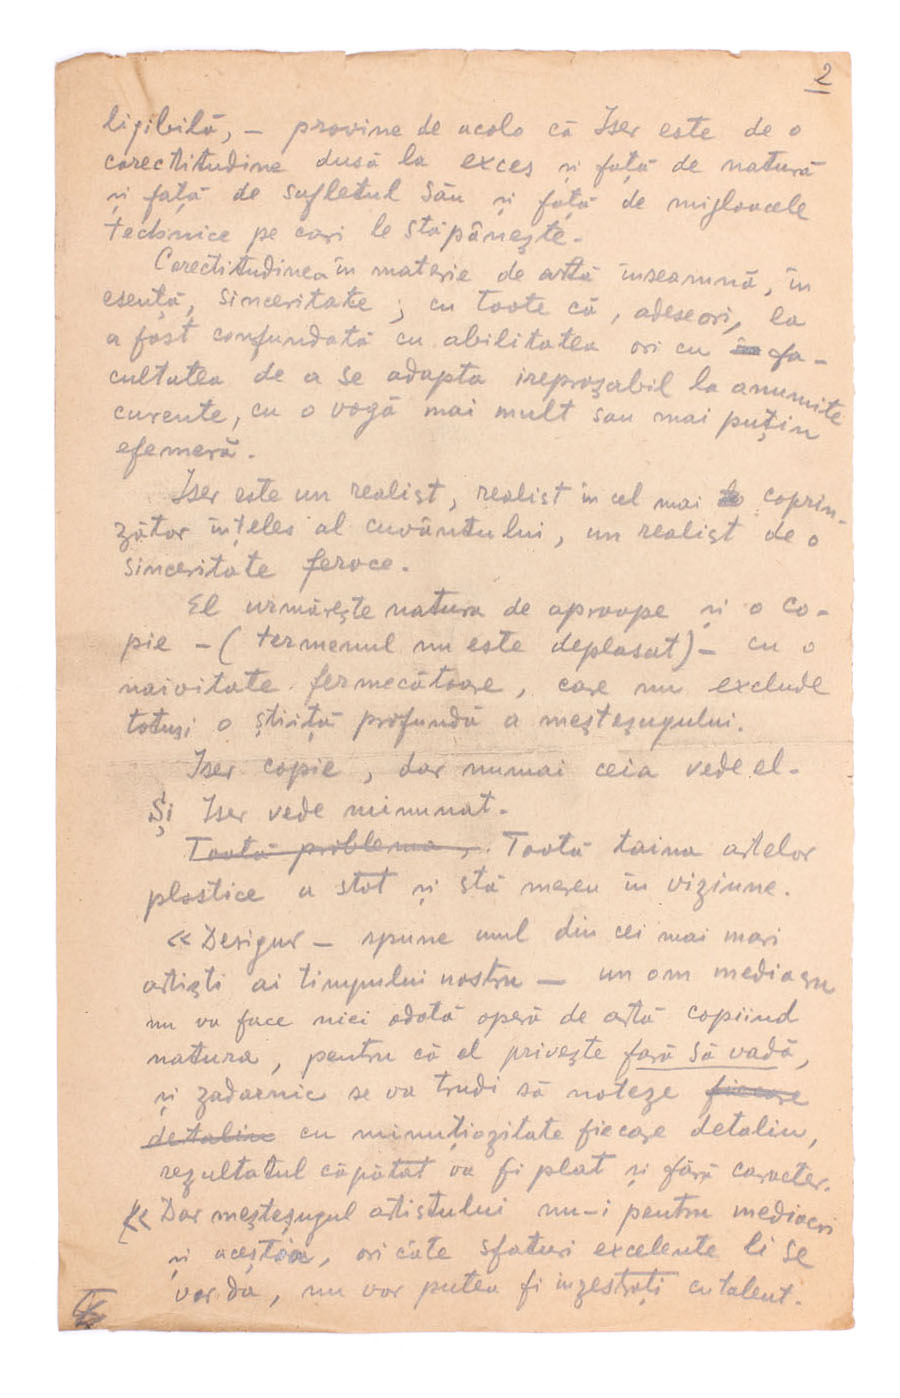 2
ligibilă, — provine de acolo că Iser este de o
corectitudine dusă la exces și față de natură
și față de sufletul său și față de mijloacele
technice pe cari le stăpânește.
Corectitudinea în materie de artă înseamnă, în
esență, sinceritate ; cu toate că, adeseori, ea
a fost confundată cu abilitatea ori cu fa-
cultatea de a se adapta ireproșabil la anumite
curente, cu o vogă mai mult sau mai puțin
efemeră.
Iser este un realist, realist în cel mai coprin-
zător înțeles al cuvântului, un realist de o
sinceritate feroce.
El urmărește natura de aproape și o co-
pie — ( termenul nu este deplasat) — cu o
naivitate fermecătoare, care nu exclude
totuși o știință profundă a meșteșugului.
Iser copie, dar numai ceia vede el.
Și Iser vede minunat.
Toată problema, . Toată taina artelor
plastice a stat și stă mereu în viziune.
« Desigur — spune unul din cei mai mari
artiști ai timpului nostru — un om mediocru
nu va face nici odată operă de artă copiind
natura, pentru că el privește fară să vadă,
și zadarnic se va trudi să noteze fiecare
detaliu cu minuțiozitate fiecare detaliu,
rezultatul căpătat va fi plat și fără caracter.
« Dar meșteșugul artistului nu-i pentru mediocri
și aceștia, ori câte sfaturi excelente li se
vor da, nu vor putea fi înzestrați cu talent.